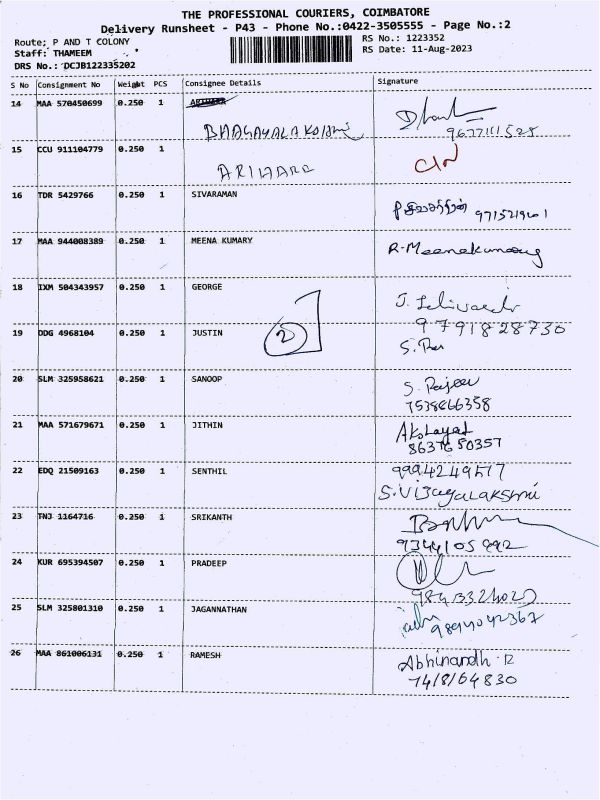 THE PROFESSIONAL COURIERS, COIMBATORE
Delivery Runsheet - P43 - Phone No.:0422-3505555 - Page No.:2
Route: P AND T COLONY
RS No.: 1223352
Staff: THAMEEM
RS Date: 11-Aug-2023
DRS No.: DCJB122335202
S No Consignment No Weight PCS Consignee Details Signature
14 MAA 570450699 0.250 1
BHAGAYALAKSHMI 9677111528
15 CCU 911104779 0.250 1
ARIHARA
16 TDR 5429766 0.250 1 SIVARAMAN
9715219601
17 MAA 944008389 0.250 1 MEENA KUMARY
R-Meenakumary
18 IXM 504343957 0.250 1 GEORGE
9791828730
19 DDG 4968104 0.250 1 JUSTIN
2
20 SLM 325958621 0.250 1 SANOOP
S. Rajeev
7538866358
21 MAA 571679671 0.250 1 JITHIN
8637650357
22 EDQ 21509163 0.250 1 SENTHIL
9994249517
S.VIJAYALAKSHMI
23 TNJ 1164716 0.250 1 SRIKANTH
9344105992
24 KUR 695394507 0.250 1 PRADEEP
25 SLM 325801310 0.250 1 JAGANNATHAN
9894042367
26 MAA 861006131 0.250 1 RAMESH
Abhinandh R
7418164830